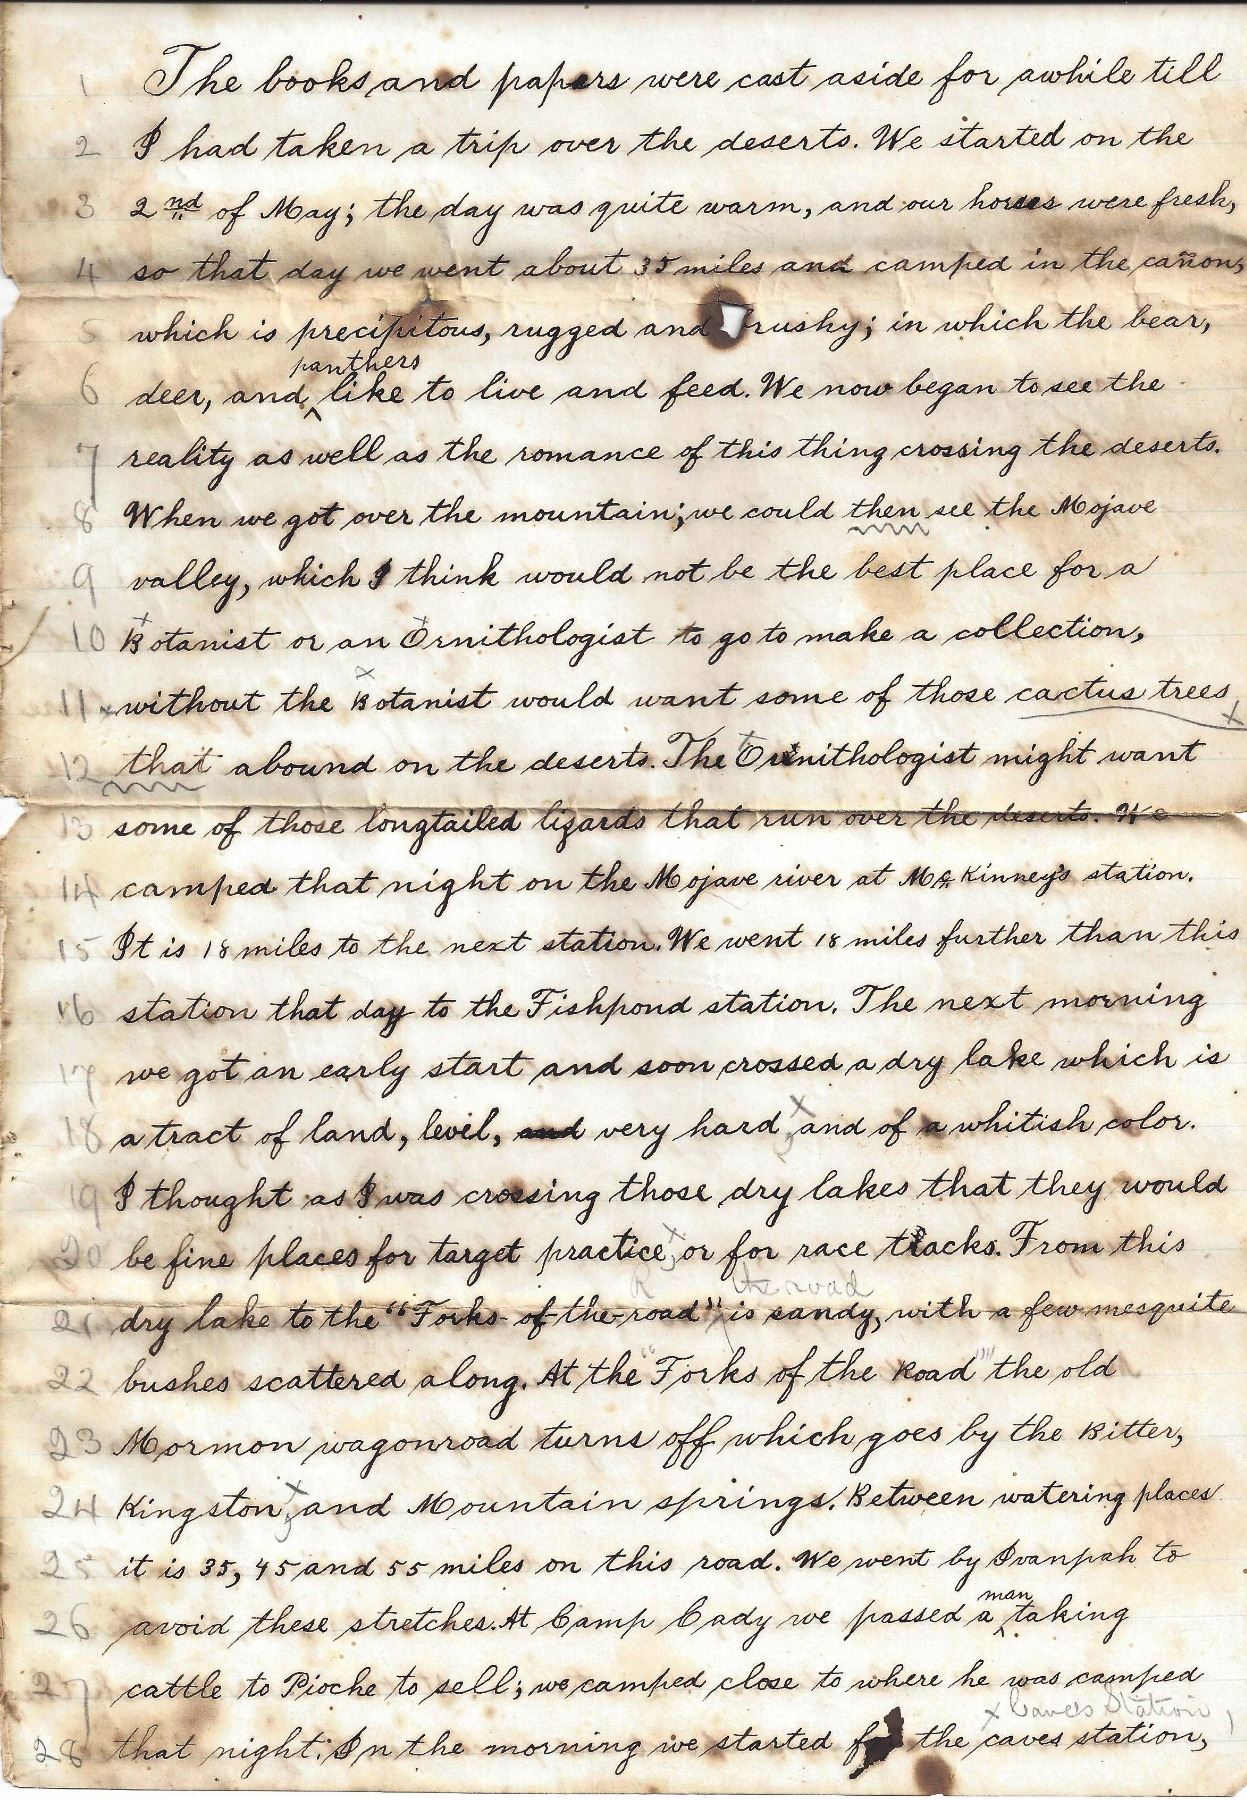 1 The books and papers were cast aside for awhile till
2 I had taken a trip over the deserts. We started on the
3 2nd of May; the day was quite warm, and our horses were fresh,
4 so that day we went about 35 miles and camped in the cañon,
5 which is precipitous, rugged and brushy; in which the bear,
panthers
6 deer, and ^ like to live and feed. We now began to see the
7 reality as well as the romance of this thing crossing the deserts.
8 When we got over the mountain; we could then see the Mojave
9 valley, which I think would not be the best place for a
10 Botanist or an Ornithologist to go to make a collection,
11 without the Botanist would want some of those cactus trees
12 that abound on the deserts. The Ornithologist might want
13 some of those longtailed lizards that run over the deserts. We
14 camped that night on the Mojave river at McKinney's station.
15 It is 18 miles to the next station. We went 18 miles further than this
16 station that day to the Fishpond station. The next morning
17 we got an early start and soon crossed a dry lake which is
18 a tract of land, level, and very hard, and of a whitish color.
19 I thought as I was crossing those dry lakes that they would
20 be fine places for target practice, or for race tracks. From this
R the road
21 dry lake to the "Forks-of-the-road" is sandy, with a few mesquite
22 bushes scattered along. At the "Forks of the Road" the old
23 Mormon wagonroad turns off which goes by the Bitter,
24 Kingston, and Mountain springs. Between watering places
25 it is 35, 45 and 55 miles on this road. We went by Ivanpah to
man
26 avoid these stretches. At Camp Cady we passed a ^ taking
27 cattle to Pioche to sell; we camped close to where he was camped
x Caves Station,
28 that night. In the morning we started for the caves station,